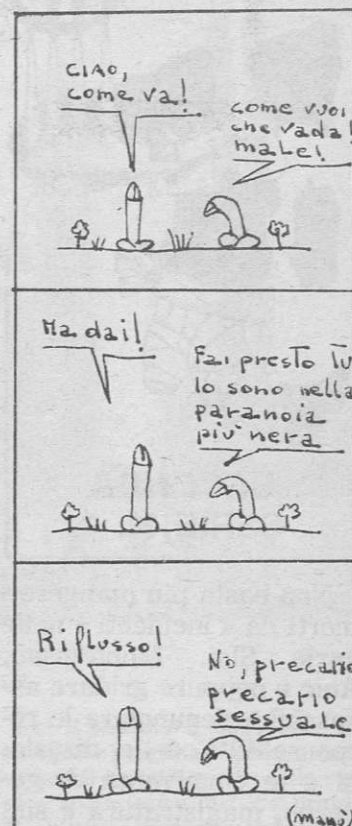 CIAO,
come va!
come vuoi
che vada!
male!
Ma dai!
Fai presto Tu
Io sono nella
paranoia
più nera
Riflusso!
No, precario
precario
sessuale
(manò)